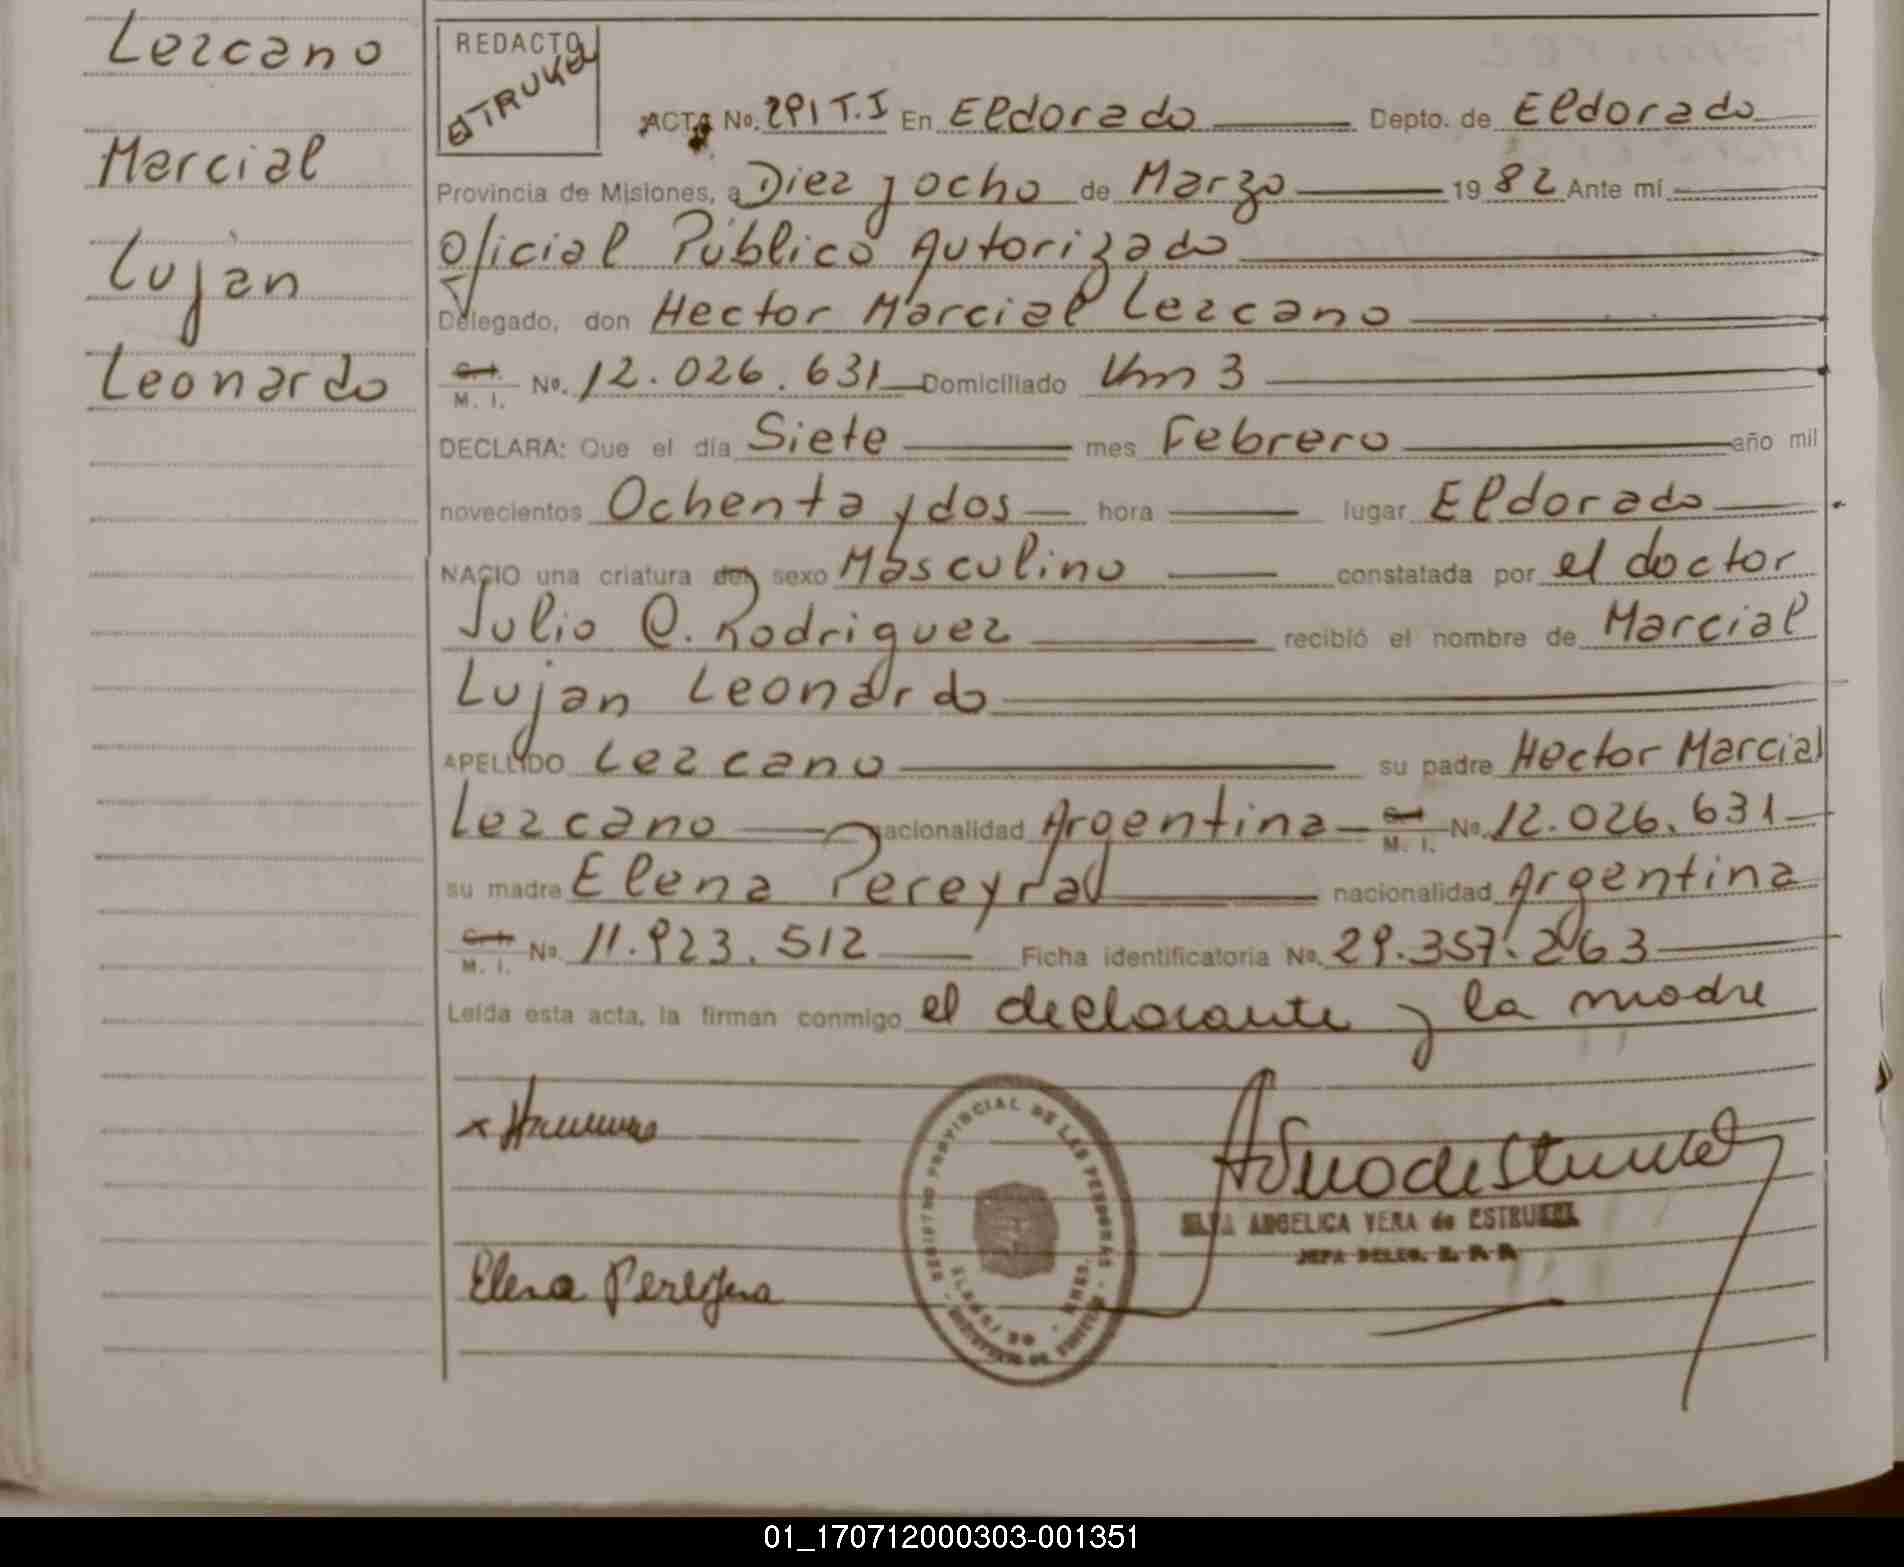 Lezcano
Marcial
Lujan
Leonardo
REDACTO
ESTRUKEL
ACTA No. 291 T.I En Eldorado Depto. de Eldorado
Provincia de Misiones, a Diez y ocho de Marzo 1982 Ante mí
Oficial Público Autorizado
Delegado, don Hector Marcial Lezcano
C. I. M. I. No. 12.026.631 Domiciliado Km 3
DECLARA: Que el día Siete mes Febrero año mil
novecientos Ochenta y dos hora lugar Eldorado
NACIO una criatura del sexo Masculino constatada por el doctor
Julio Q. Rodriguez recibió el nombre de Marcial
Lujan Leonardo
APELLIDO Lezcano su padre Hector Marcial
Lezcano nacionalidad Argentina C. I. M. I. No. 12.026.631
su madre Elena Pereyra nacionalidad Argentina
C. I. M. I. No. 11.923.512 Ficha identificatoria No. 29.357.263
Leída esta acta, la firman conmigo el declarante y la madre
REGISTRO PROVINCIAL DE LAS PERSONAS
ELDORADO MNES.
ANGELICA VERA de ESTRUKEL
JEFA DELEG. R. P. P.
Elena Pereyra
01_170712000303-001351